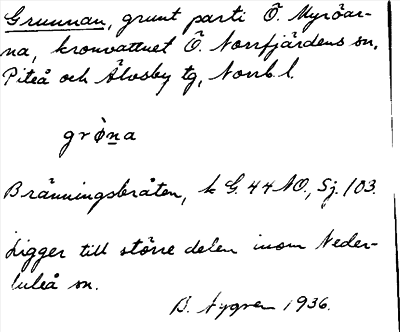 Grunnan, grunt parti Ö. Myröar-
na, kronvattnet Ö. Norrfjärdens sn,
Piteå och Älvsby tg, Norrb. l.
grò̤na
Bränningsbråten, k G. 44 NO., Sj. 103.
Ligger till större delen inom Neder-
luleå sn.
B. Nygren 1936.